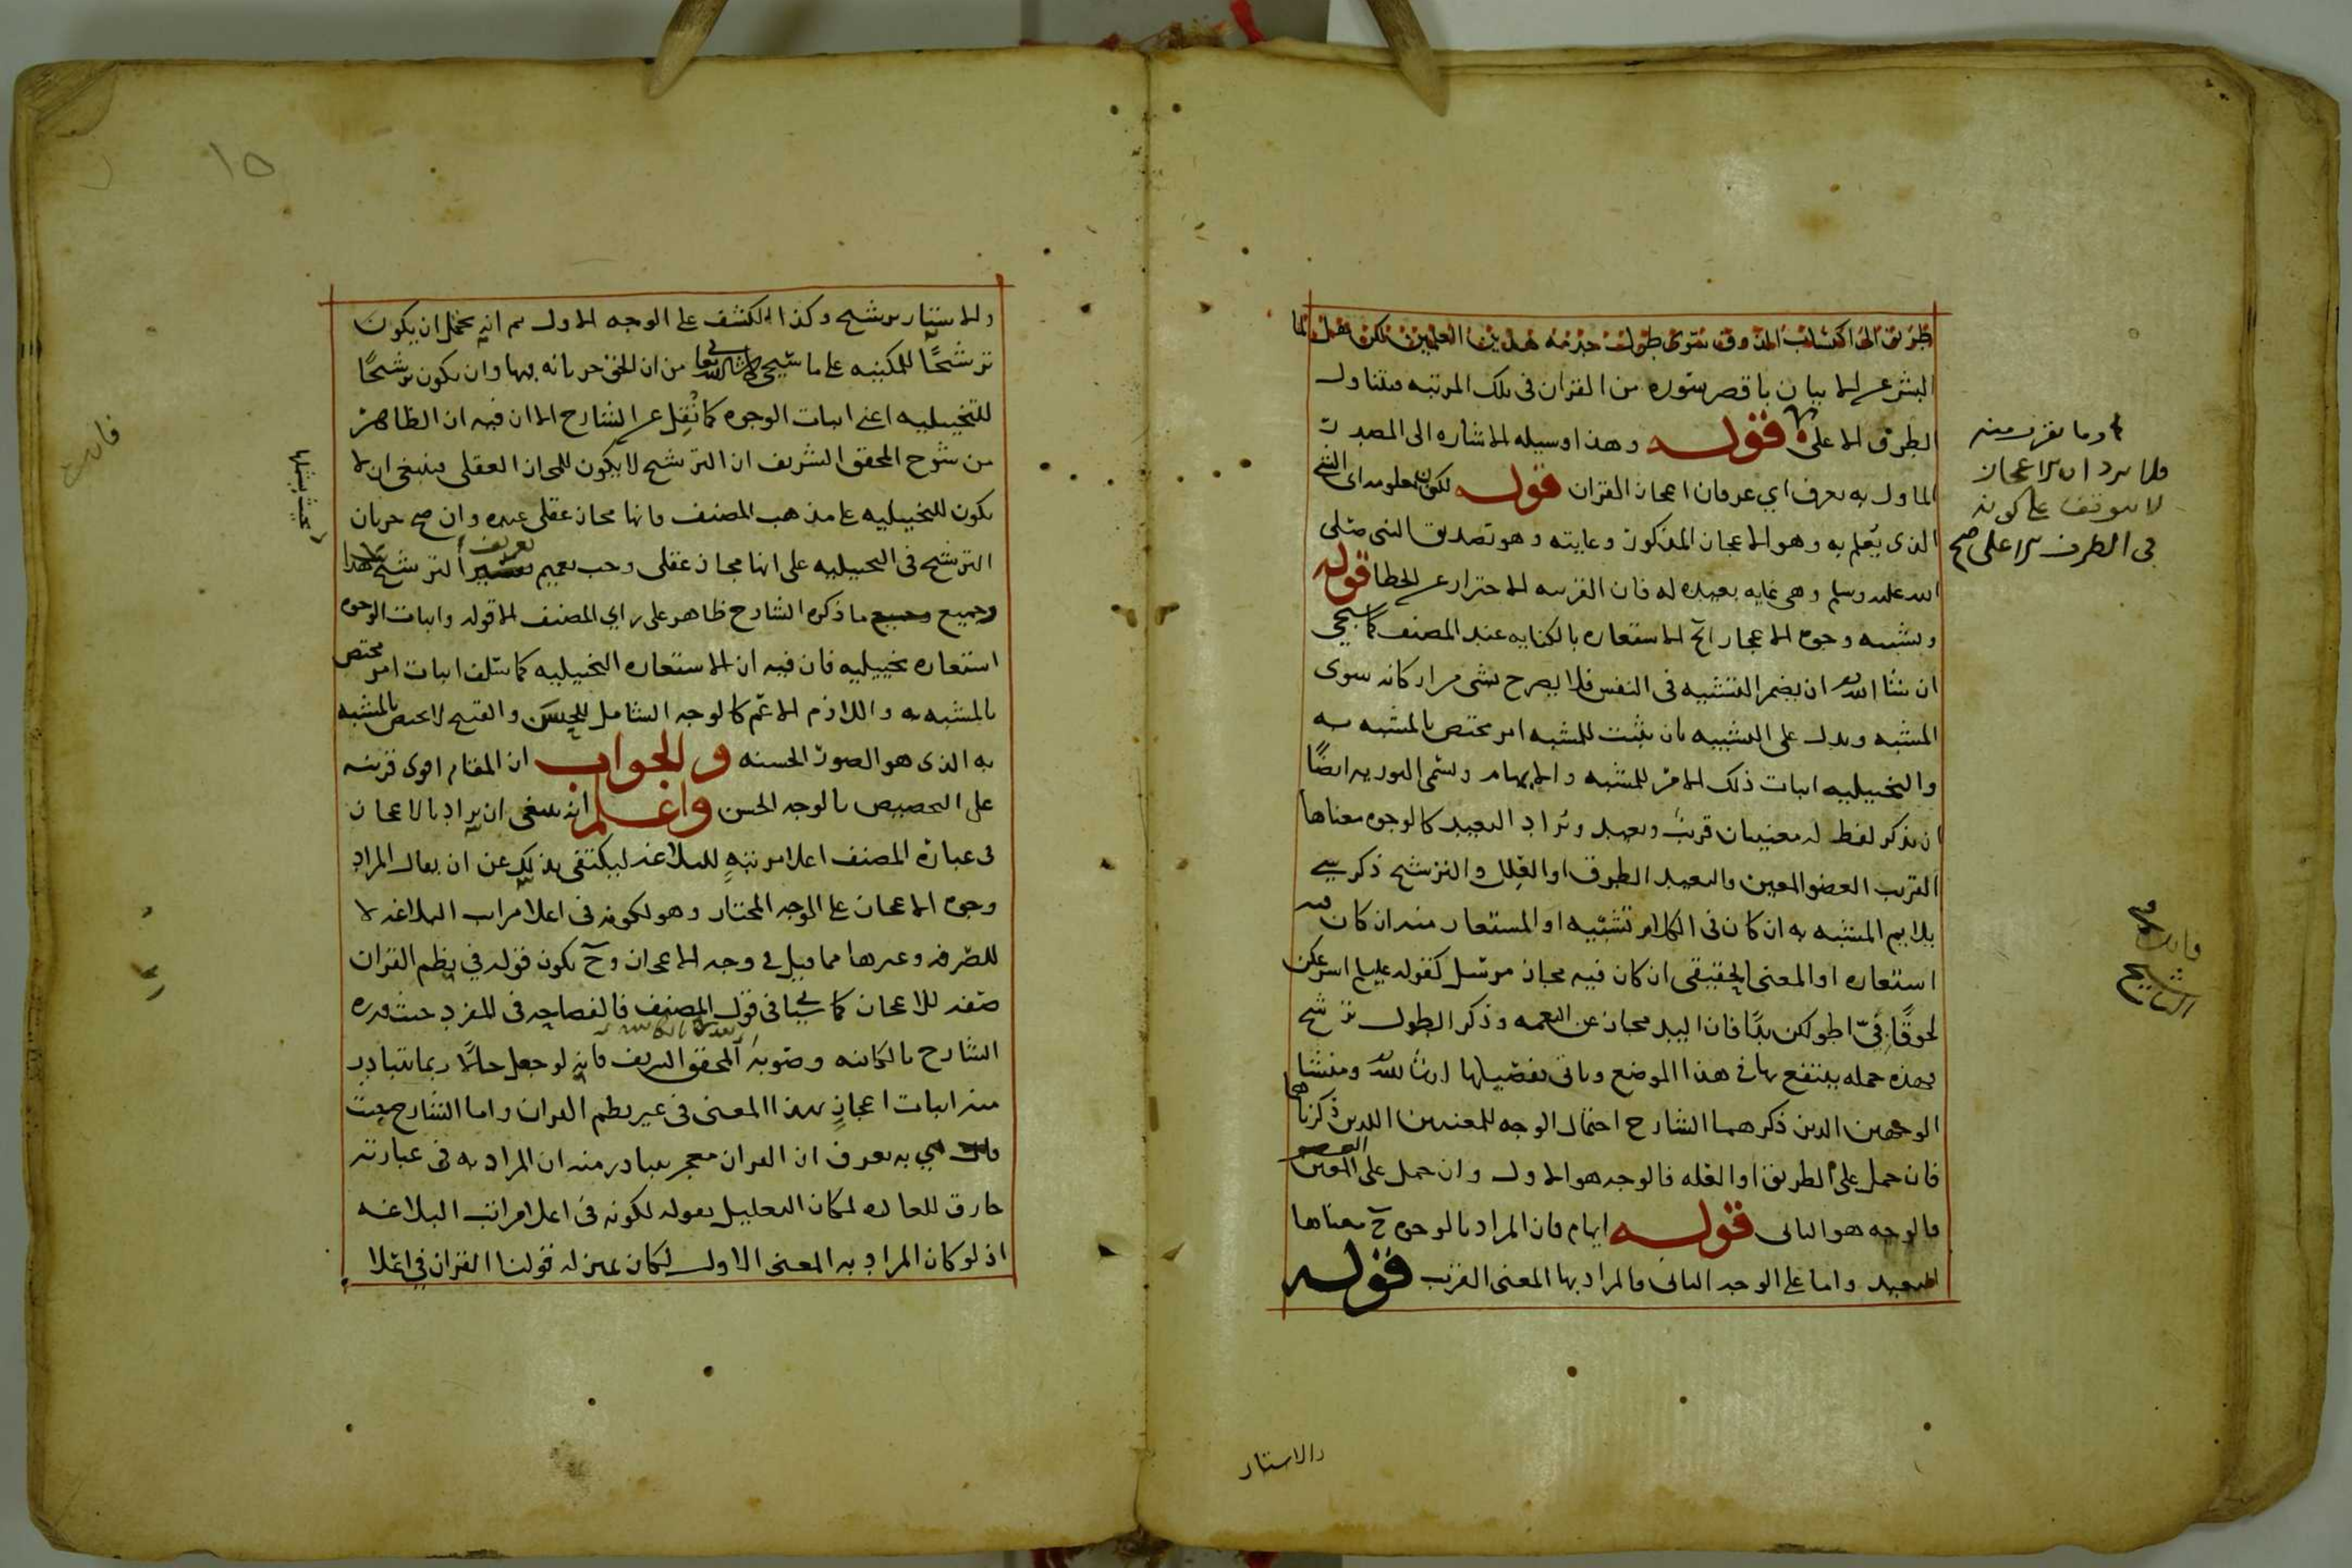 طريق الى اكتساب الذوق سوى طول خدمة هذين العلمين لكن نقل لنا
البشر عـ الا بيان باقصر سوره من القران فى تلك المرتبه فيتناول
الطرف الاعلى قوله وهذا وسيله الاشاره الى المصدر
الماول به يعرف اي عرفان اعجاز القران قوله لكون معلومه اى الشى
الذى يعلم به وهو الاعجاز المذكور وغايته وهو تصديق النبى صلى
الله عليه وسلم وهى غايه بعيده له فان القريبه الاحتراز عن الخطا قوله
وتشبيه وجوه الاعجاز الخ الاستعاره بالكنايه عند المصنف كما سيجى
ان شا الله ان يضمر التشبيه فى النفس فلا يصرح بشى من اركانه سوى
المشبه ويدل على التشبيه بان يثبت للمشبه امر مختص بالمشبه به
والتخييليه اثبات ذلك الامر للمشبه والايهام ويسمى التوريه ايضًا
ان يذكر لفظ له معنيان قريب وبعيد ويراد البعيد كالوجوه معناها
القريب العضو المعين والبعيد الطرق او العلل والترشيح ذكر شى
يلايم المشبه به ان كان فى الكلام تشبيه او المستعار منه ان كان فيه
استعاره او المعنى الحقيقى ان كان فيه مجاز مرسل كقوله عليلم اسرعكن
لحوقًا بى اطولكن يدًا فان اليد مجاز عن النعمه وذكر الطول ترشيح
فهذه جمله ينتفع بها فى هذا الموضع وياتى تفصيلها ان شا الله ومنشا
الوجهين الذين ذكرهما الشارح احتمال الوجه للمعنيين اللذين ذكرناهما
فان حمل على الطريق او العله فالوجه هو الاول وان حمل على العضو المعين
فالوجه هو الثانى قوله ايهام فان المراد بالوجوه ح معناها
البعيد واما على الوجه الثانى فالمراد بها المعنى القريب قوله
وما يقرب منه
فلا يرد ان الاعجاز
لا يتوقف على كونه
فى الطرف الاعلى صح
والاستار
والاستار ترشيح وكذا الكشف على الوجه الاول ثم انه يحتمل ان يكون
ترشيحًا للمكنيه على ما سيجى ان شا الله تعا من ان الحق جريانه فيها وان يكون ترشيحًا
للتخييليه اعنى اثبات الوجوه كما نقل عن الشارح الا ان فيه ان الظاهر
من شرح المحقق الشريف ان الترشيح لا يكون للمجاز العقلى فينبغى ان لا
يكون للتخييليه على مذهب المصنف فانها مجاز عقلى عنده وان صح جريان
الترشيح فى التخييليه على انها مجاز عقلى وجب تعميم تعريف الترشيح
وجميع ما ذكره الشارح ظاهر على راي المصنف الا قوله واثبات الوجوه
استعاره تخييليه فان فيه ان الاستعاره التخييليه كما سلف اثبات امر مختص
بالمشبه به واللازم الاعم كالوجه الشامل للحسن والقبيح لا يختص بالمشبه
به الذى هو الصور الحسنه والجواب ان المقام اقوى قرينه
على التخصيص بالوجه الحسن واعلم انه ينبغى ان يراد بالاعجاز
فى عبارة المصنف اعلا مرتبةٍ للبلاغه ليكتفى بذلك عن ان يقال المراد
وجوه الاعجاز على الوجه المختار وهو لكونه فى اعلا مراتب البلاغه لا
للصرفه وغيرها مما قيل فى وجه الاعجاز وح يكون قوله في نظم القران
صفه للاعجاز كما يجيا فى قول المصنف فالفصاحه فى المفرد حيث قدره
الشارح بالكائنه وصوبه المحقق الشريف فانه لو جعل حالًا ربما يتبادر
منه اثبات اعجازٍ بهذا المعنى فى غير نظم القران واما الشارح حيث
قال اي به يعرف ان القران معجز يتبادر منه ان المراد به فى عبارته
خارق للعاده لمكان التعليل بقوله لكونه فى اعلا مراتب البلاغه
اذ لو كان المراد به المعنى الاول لكان بمنزله قولنا القران في اعلا
١٥